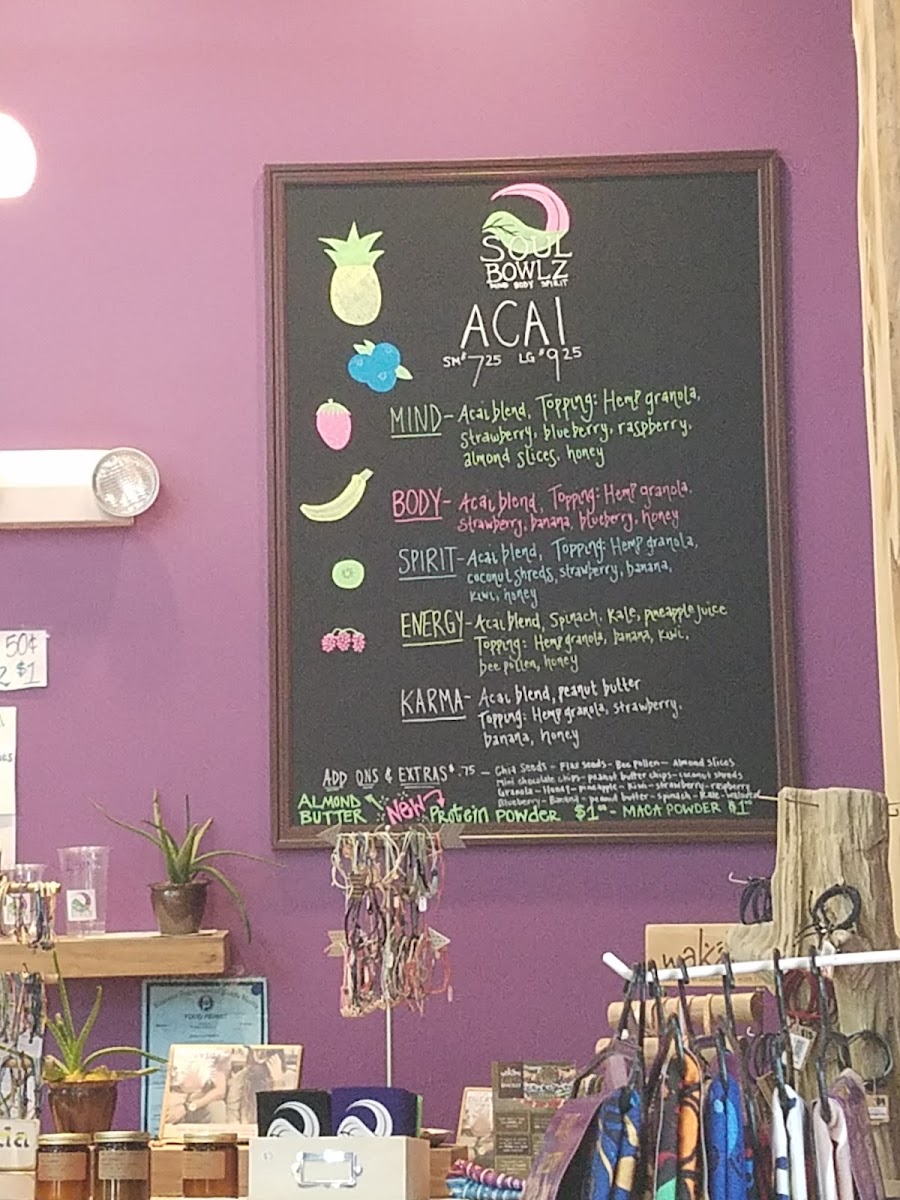 SOUL
BOWLZ
MIND BODY SPIRIT
ACAI
SM $7 25 LG $9 25
MIND - Acai blend, Topping: Hemp granola,
strawberry, blueberry, raspberry,
almond slices, honey
BODY - Acai blend, Topping: Hemp granola,
strawberry, banana, blueberry, honey
SPIRIT - Acai blend, Topping: Hemp granola,
coconut shreds, strawberry, banana,
kiwi, honey
ENERGY - Acai blend, Spinach, Kale, pineapple juice
Topping: Hemp granola, banana, kiwi,
bee pollen, honey
KARMA - Acai blend, peanut butter
Topping: Hemp granola, strawberry,
banana, honey
ADD ONS & EXTRAS $.75 - Chia Seeds - Flax seeds - Bee Pollen - Almond slices
Mini chocolate chips - peanut butter chips - coconut shreds
Granola - Honey - pineapple - Kiwi - strawberry - raspberry
Blueberry - Banana - peanut butter - spinach - Kale - walnuts
ALMOND
BUTTER NEW Protein POWDER $1 - MACA POWDER $1
50¢
2 $1
FOOD PERMIT
waka